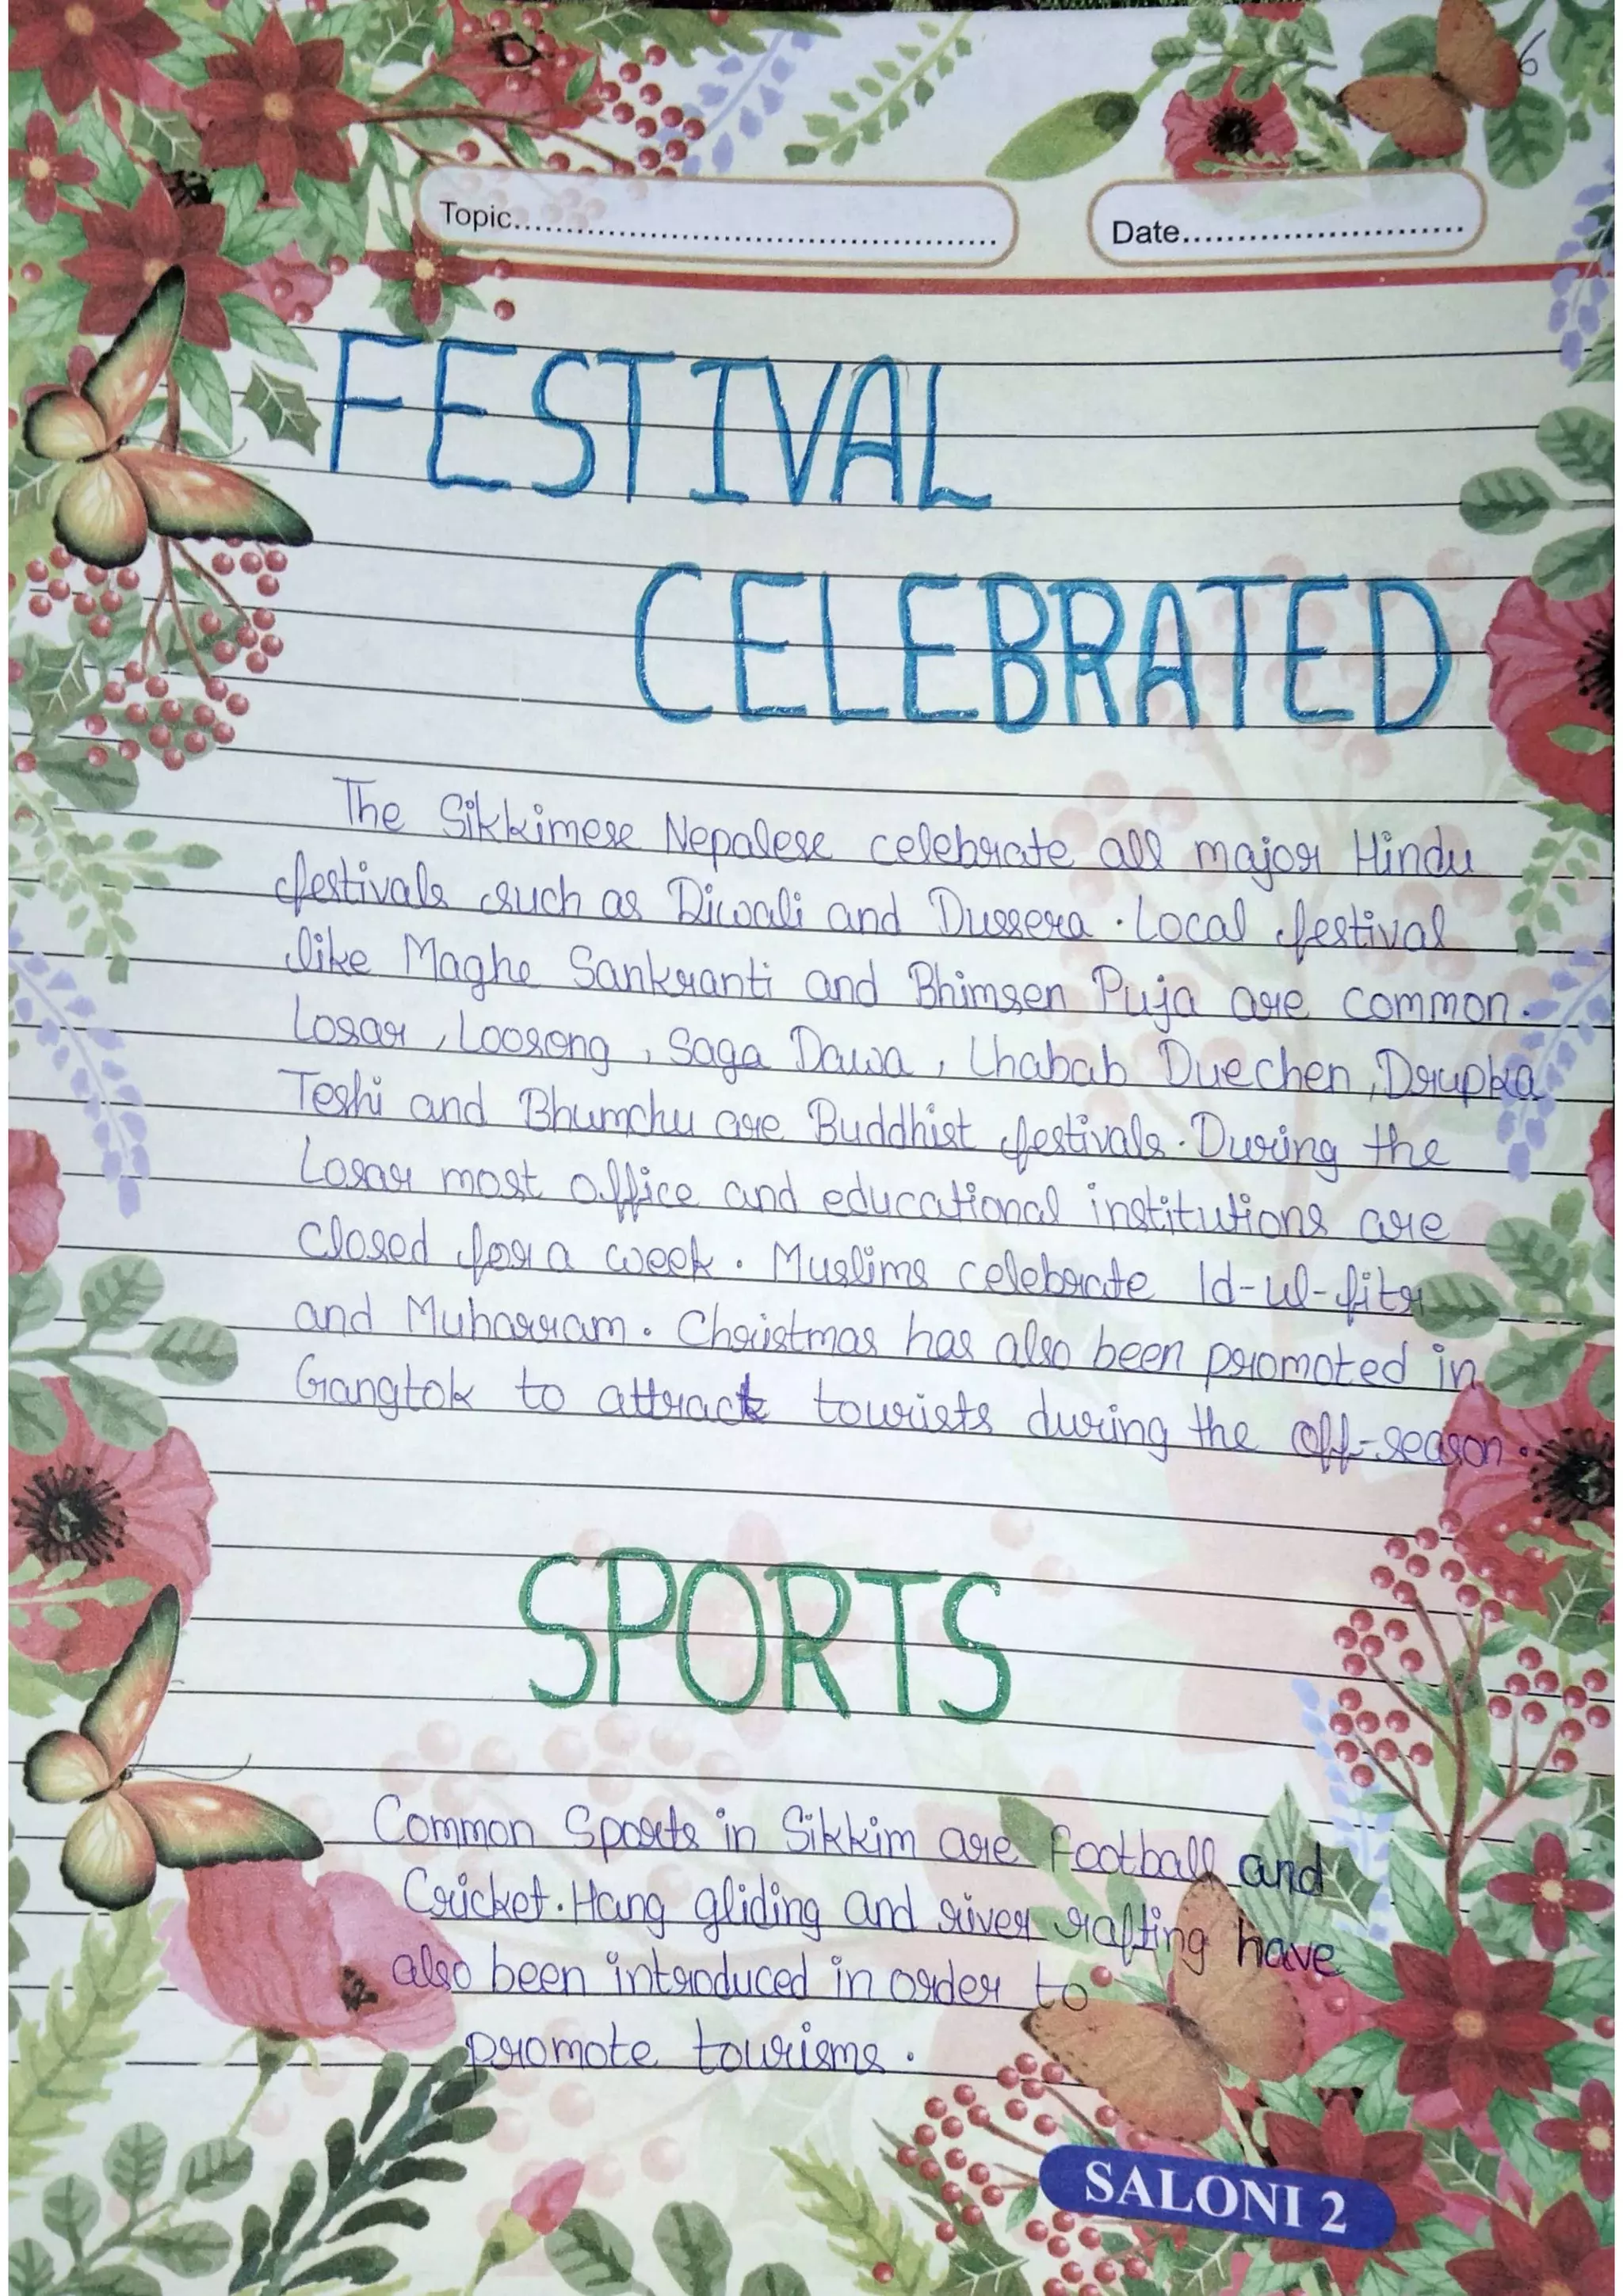 6
Topic........................................................ Date............................
FESTIVAL
CELEBRATED
The Sikkimese Nepalese celebrate all major Hindu
festivals such as Diwali and Dussera . Local festival
like Maghe Sankranti and Bhimsen Puja are common.
Losar , Loosong , Saga Dawa , Lhabab Duechen , Drupka
Teshi and Bhumchu are Buddhist festivals. During the
Losar most office and educational institutions are
closed for a week . Muslims celebrate Id-ul-fitr
and Muharram . Christmas has also been promoted in
Gangtok to attract tourists during the off-season .
SPORTS
Common Sports in Sikkim are football and
Cricket . Hang gliding and river rafting have
also been introduced in order to
promote tourisms .
SALONI 2